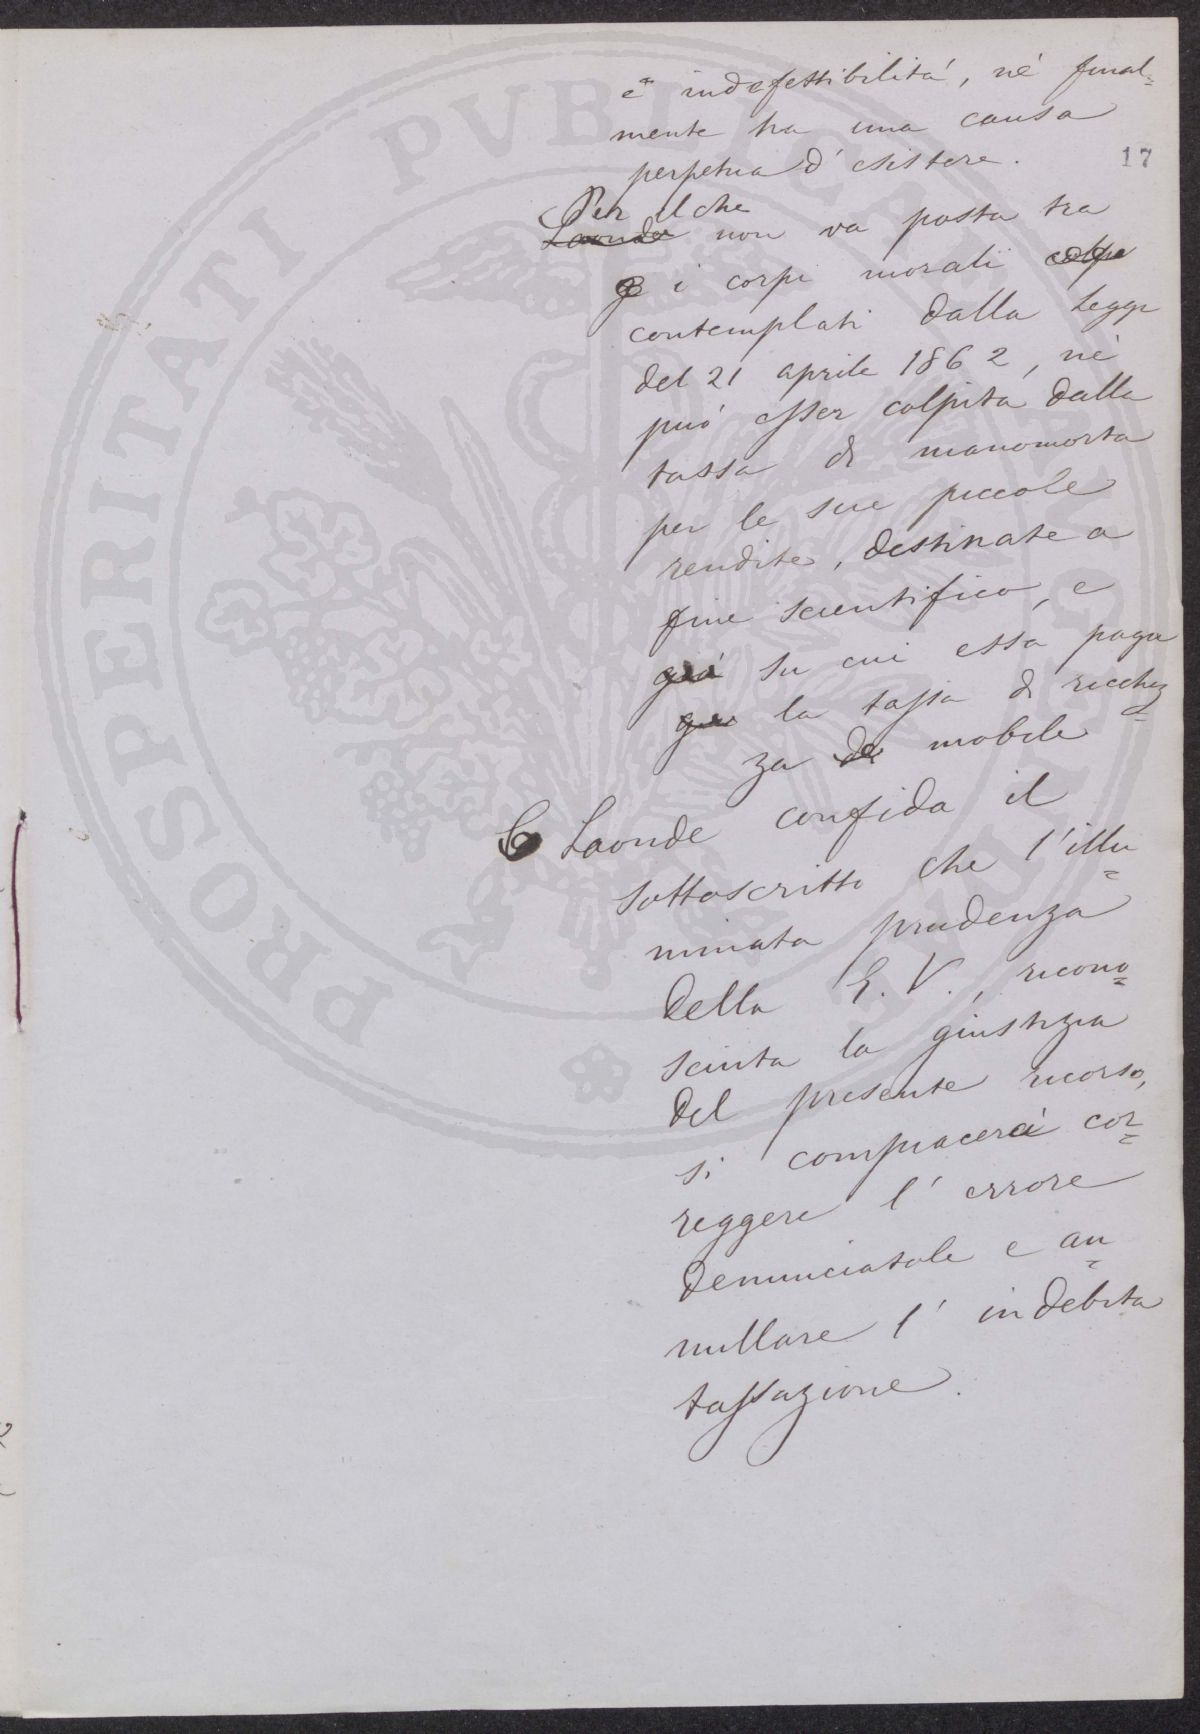 è indefettibilità, nè final=
mente ha una causa
perpetua d'esistere.
17
Per il che
Laonde non va posta tra
i corpi morali colpe
contemplati dalla legge
del 21 aprile 1862, nè
può esser colpita dalla
tassa di manomorta
per le sue piccole
rendite, destinate a
fine scientifico, e
già su cui essa paga
la tassa di ricchez
=
za de mobile
Laonde confida il
sottoscritto che l'illu
=
minata prudenza
della E. V., ricono
=
sciuta la giustizia
del presente ricorso,
si compiacerà cor
=
reggere l'errore
denunciatole e an
=
nullare l'indebita
tassazione.
PROSPERITATI PVBLICAE